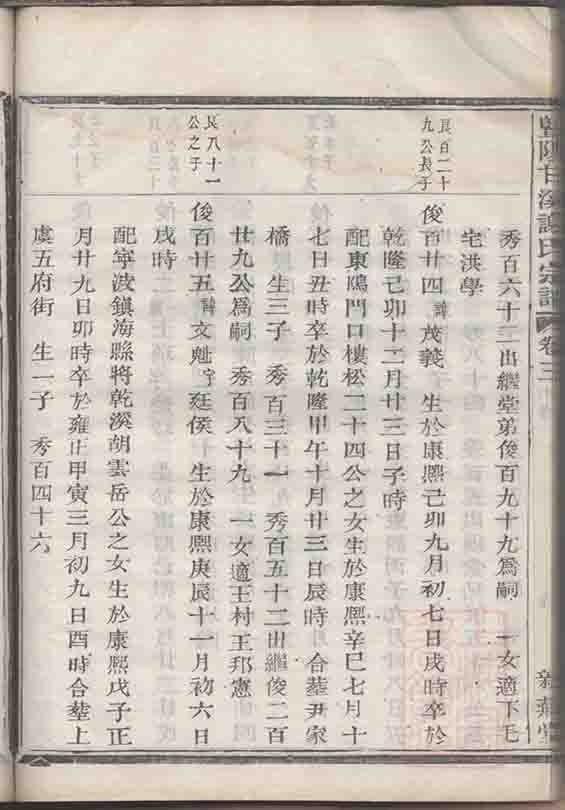 暨陽甘溪謝氏宗譜 卷三
秀百六十二出繼堂弟俊百九十九爲嗣 一女適下毛
宅洪學
良百二十
九公長子
俊百廿四 諱 茂義 生於康熙己卯九月初七日戌時卒於
乾隆己卯十二月廿三日子時
配東陽門口樓松二十四公之女生於康熙辛巳七月十
七日丑時卒於乾隆甲午十月廿三日辰時 合塟尹家
橋 生三子 秀百三十一 秀百五十二出繼俊二百
廿九公爲嗣 秀百八十九 一女適王村王邦憲
良八十一
公之子
俊百廿五 諱 文魁 字 廷侯 生於康熙庚辰十一月初六日
戌時
配寧波鎮海縣將乾溪胡雲岳公之女生於康熙戊子正
月廿九日卯時卒於雍正甲寅三月初九日酉時合塟上
虞五府街 生一子 秀百四十六